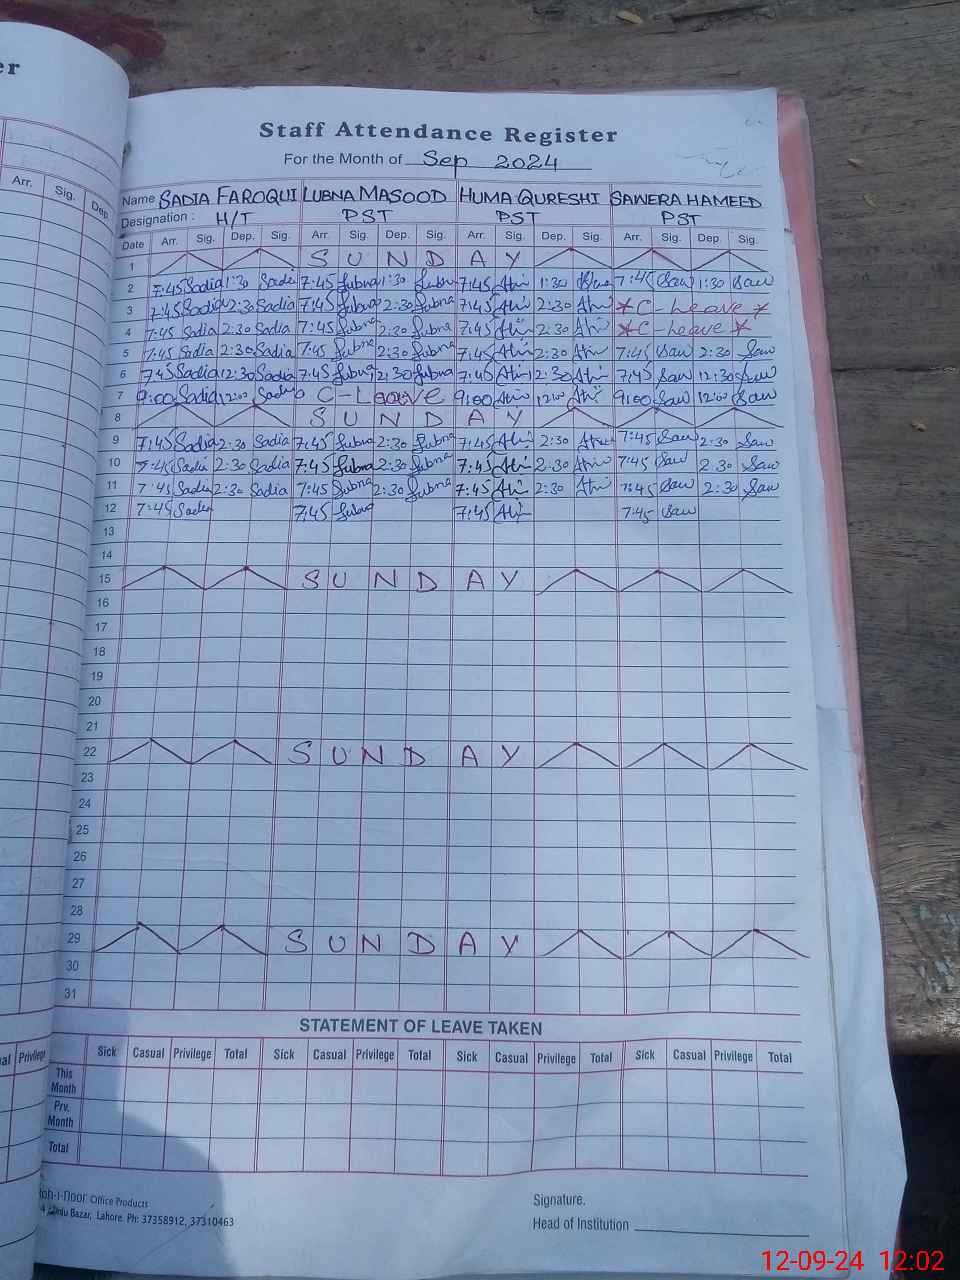 er
Staff Attendance Register
For the Month of Sep 2024
Name SADIA FAROQUI LUBNA MASOOD HUMA QURESHI SAWERA HAMEED
Designation : H/T PST PST PST
Arr. Sig. Dep.
Date Arr. Sig. Dep. Sig. Arr. Sig. Dep. Sig. Arr. Sig. Dep. Sig. Arr. Sig. Dep. Sig.
1 SUNDAY
2 7:45 Sadia 1:30 Sadia 7:45 Lubna 1:30 Lubna 7:45 1:30 7:45 Saw 1:30 Saw
3 7:45 Sadia 2:30 Sadia 7:45 Lubna 2:30 Lubna 7:45 2:30 *C-Leave*
4 7:45 Sadia 2:30 Sadia 7:45 Lubna 2:30 Lubna 7:45 2:30 *C-Leave*
5 7:45 Sadia 2:30 Sadia 7:45 Lubna 2:30 Lubna 7:45 2:30 7:45 Saw 2:30 Saw
6 7:45 Sadia 12:30 Sadia 7:45 Lubna 12:30 Lubna 7:45 12:30 7:45 Saw 12:30 Saw
7 9:00 Sadia 12:00 Sadia C-Leave 9:00 12:00 9:00 Saw 12:00 Saw
8 SUNDAY
9 7:45 Sadia 2:30 Sadia 7:45 Lubna 2:30 Lubna 7:45 2:30 7:45 Saw 2:30 Saw
10 7:45 Sadia 2:30 Sadia 7:45 Lubna 2:30 Lubna 7:45 2:30 7:45 Saw 2:30 Saw
11 7:45 Sadia 2:30 Sadia 7:45 Lubna 2:30 Lubna 7:45 2:30 7:45 Saw 2:30 Saw
12 7:45 Sadia 7:45 Lubna 7:45 7:45 Saw
13
14
15 SUNDAY
16
17
18
19
20
21
22 SUNDAY
23
24
25
26
27
28
29 SUNDAY
30
31
STATEMENT OF LEAVE TAKEN
Privilege
Sick Casual Privilege Total Sick Casual Privilege Total Sick Casual Privilege Total Sick Casual Privilege Total
This Month
Prv. Month
Total
oh-i-noor Office Products
Bazar, Lahore. Ph: 37358912, 37310463
Signature.
Head of Institution
12-09-24 12:02